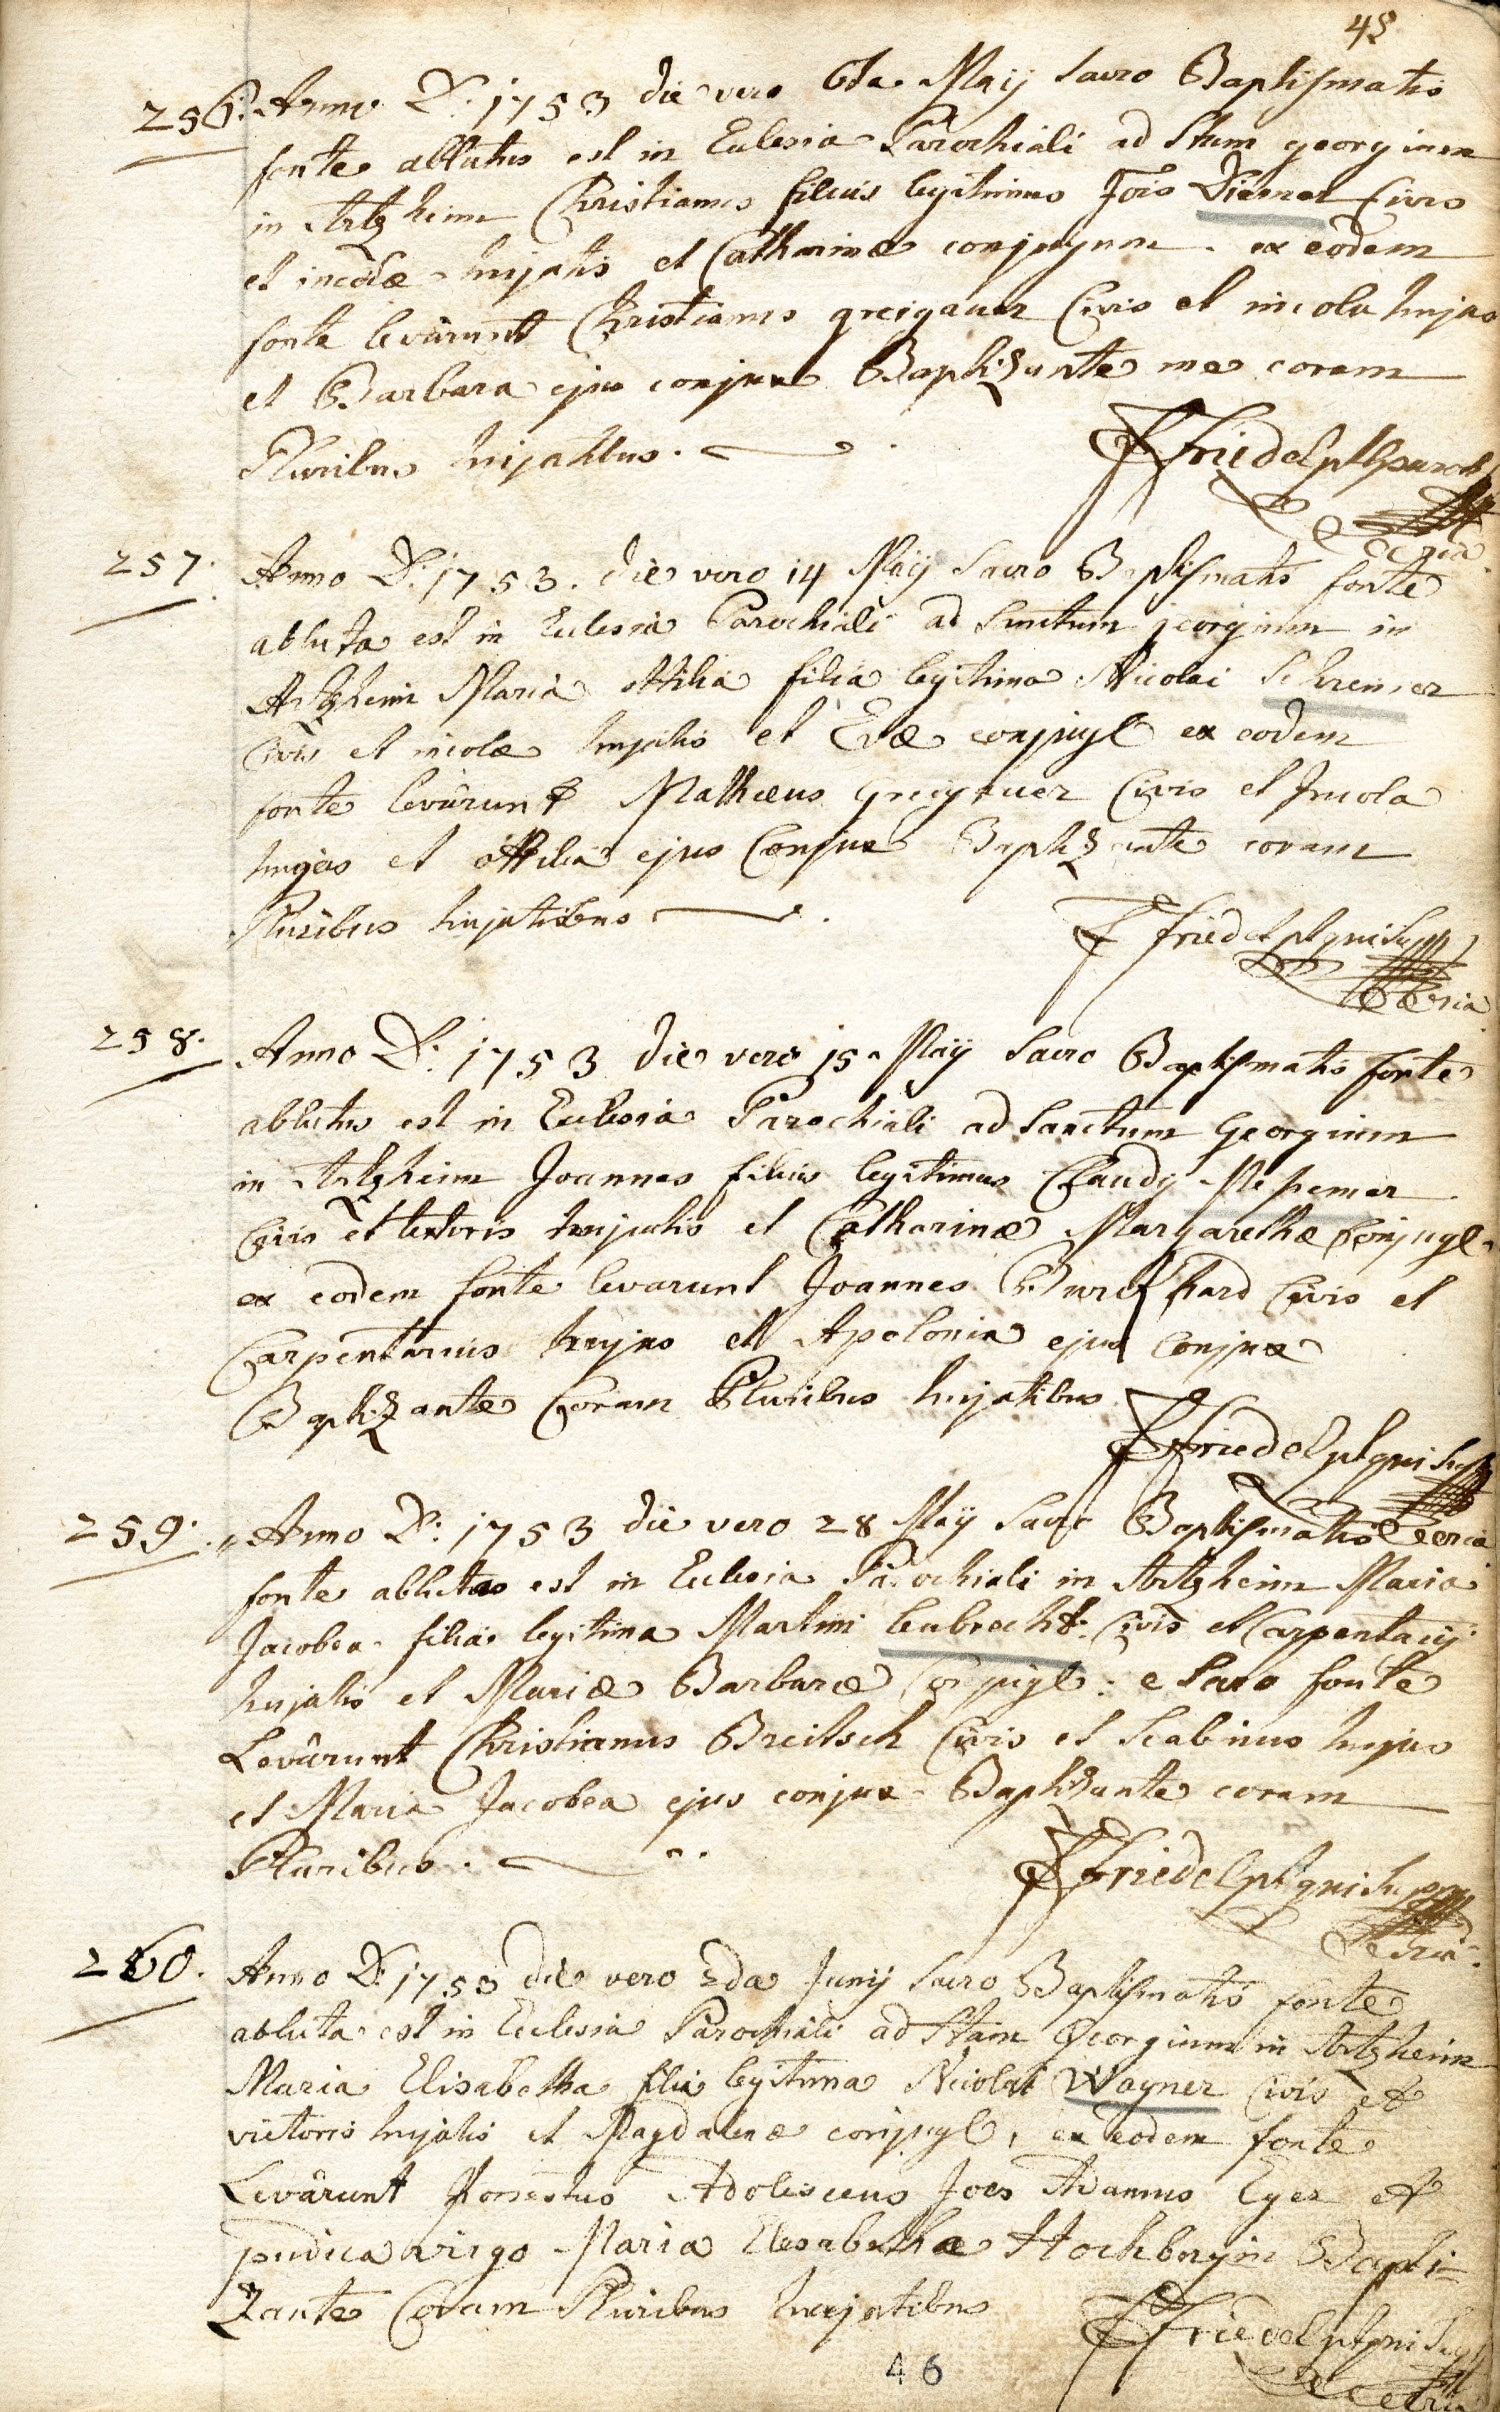 45
256. Anno D: 1753 die vero 6ta Maij Sacro Baptismatis
fonte ablutus est in Eclesia Parochiali ad Stum georgium
in Artzheim Christianus filius legitimus Jois Diemer Civis
et incolae hujatis et Catharinae conjugum. ex eodem
fonte levârunt Christianus greigauer Civis et incola hujus
et Barbara ejus conjux Baptizante me coram
Pluribus hujatibus.
F Friedel
257. Anno D: 1753. die vero 14 Maij Sacro Baptismatis fonte
abluta est in Eclesia Parochiali ad Sanctum georgium in
Artzheim Maria ottilia filia legitima Nicolai Schreiner
Civis et incolae hujatis et Evae conjugu ex eodem
fonte levârunt Matheus Greigauer Civis et Incola
hujus et ottilia ejus Conjux Baptizante coram
Pluribus hujatibus
F Friedel pl qui supra
258. Anno D: 1753 die vero 15 Maij Sacro Baptismatis fonte
ablutus est in Eclesia Parochiali ad Sanctum Georgium
in Artzheim Joannes filius legitimus Claudij
Civis et textoris hujatis et Catharinae Margarethae Conjugu
ex eodem fonte levarunt Joannes Burckhard Civis et
Carpentarius hujus et Apolonia ejus Conjux
Baptizante Coram Pluribus hujatibus
F Friedel pl qui sup
259. Anno D: 1753 die vero 28 Maij Sacro Baptismatis
fonte abluta est in Eclesia Parochiali in Artzheim Maria
Jacobea filia legitima Martini leubrecht Civis et Carpentarij
hujatis et Mariae Barbarae Conjugu: e Sacro fonte
Levârunt Christianus Breitsch Civis et Scabinus hujus
et Maria Jacobea ejus conjux Baptizante coram
Pluribus.
F Friedel pl qui supra
260. Anno D: 1753 die vero 2da Junij Sacro Baptismatis fonte
abluta est in Eclesia Parochiali ad Stum Georgium in Artzheim
Maria Elisabetha filia legitima Nicolai Wagner Civis et
victoris hujatis et Magdalenae conjugu, ex eodem fonte
Levârunt honestus Adolescens Joes Adamus Eyer et
pudica virgo Maria Elesabetha Hochbergin Bapti-
zante Coram Pluribus hujatibus
F Friedel pl qui sup
46